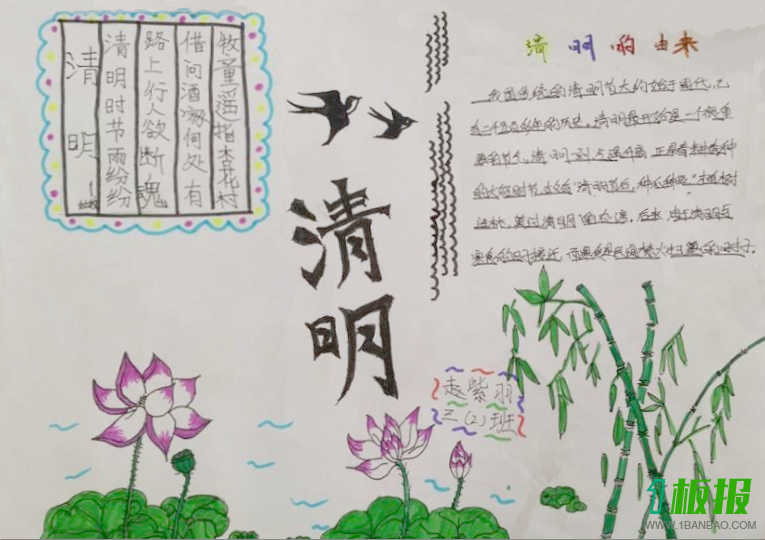 清明
清明时节雨纷纷
路上行人欲断魂
借问酒家何处有
牧童遥指杏花村
清明
清明的由来
我国传统的清明节大约始于周代,已
有二千五百多年的历史。清明最开始是一个很重
要的节气,清明一到,气温升高,正是春耕春种
的大好时节,故有“清明前后,种瓜种豆。”“植树
造林,莫过清明”的农谚。后来,由于清明与
寒食的日子接近,而寒食是民间禁火扫墓的日子.
赵紫羽
三(2)班
板报
WWW.1BANBAO.COM